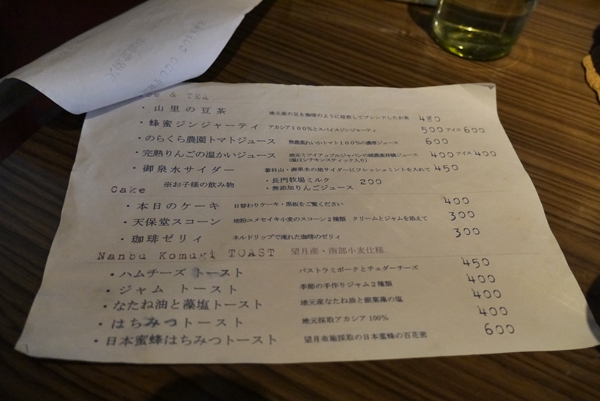 & TEA
・山里の豆茶 地元産の豆を珈琲のように焙煎してブレンドしたお茶 480
・蜂蜜ジンジャーティ アカシア100％とスパイスジンジャーティ 500 アイス600
・のらくら農園トマトジュース 100％の濃厚ジュース 600
・完熟りんごの温かいジュース 400 アイス400
・御泉水サイダー 450
※お子様の飲み物 ・長門牧場ミルク 200
・無添加りんごジュース
Cake
・本日のケーキ 日替わりケーキ・黒板をご覧ください 400
・天保堂スコーン 地粉ユメセイキ小麦のスコーン2種類 クリームとジャムを添えて 300
・珈琲ゼリィ ネルドリップで淹れた珈琲のゼリィ 300
Nanbu Komugi TOAST 望月産・南部小麦仕様
・ハムチーズ トースト パストラミポークとチェダーチーズ 450
・ジャム トースト 季節の手作りジャム2種類 400
・なたね油と藻塩トースト 地元産なたね油と の塩 400
・はちみつトースト 地元採取アカシア100％ 400
・日本蜜蜂はちみつトースト 採取の日本蜜蜂の百花蜜 600